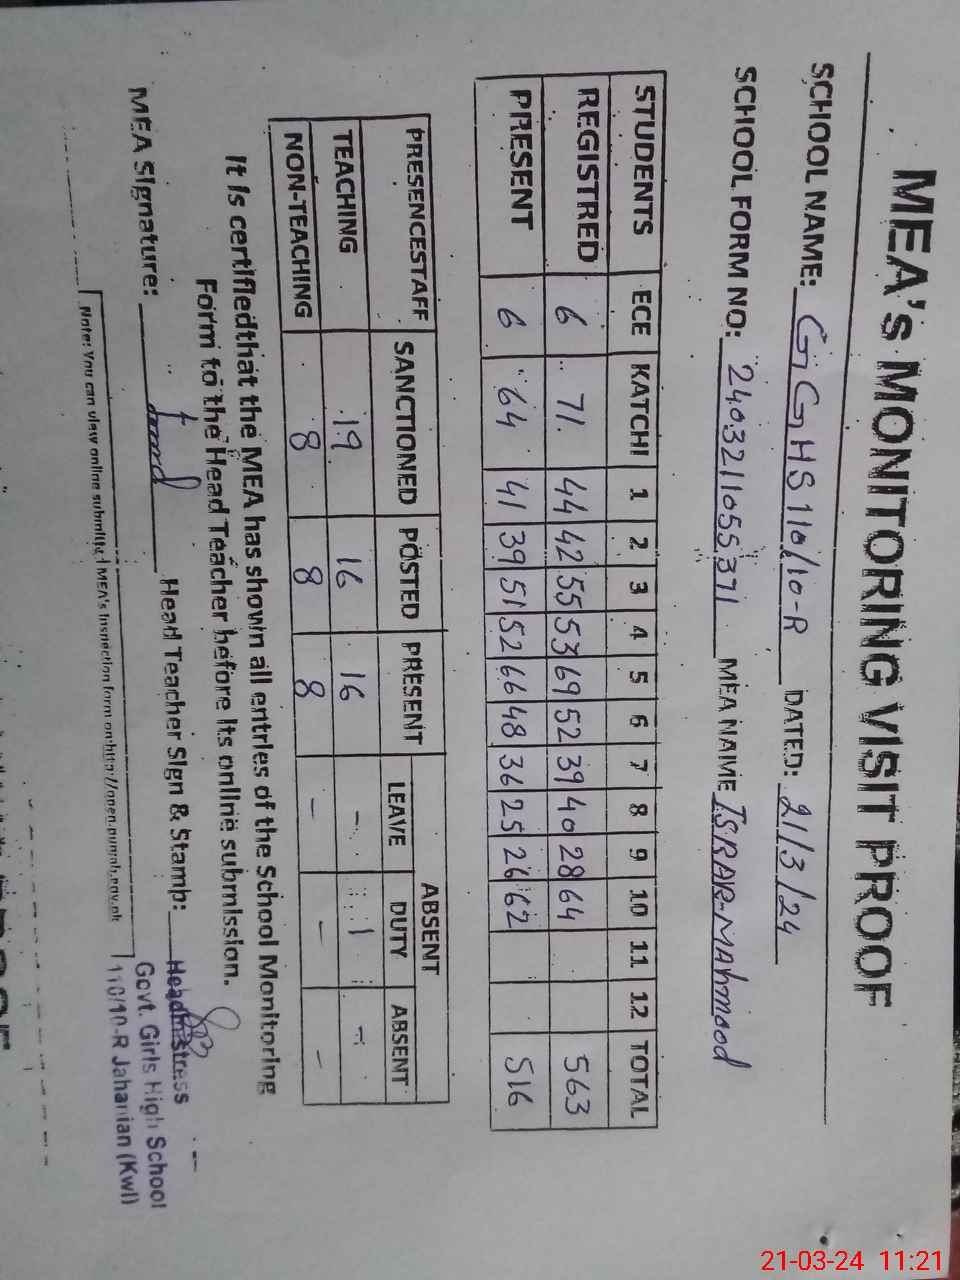 MEA's MONITORING VISIT PROOF
SCHOOL NAME: GGHS 110/10-R DATED: 21/3/24
SCHOOL FORM NO: 2403211055371 MEA NAME ISRAR-MAhmood
STUDENTS ECE KATCHI 1 2 3 4 5 6 7 8 9 10 11 12 TOTAL
REGISTRED 6 71 44 42 55 53 69 52 39 40 28 64 563
PRESENT 6 64 41 39 51 52 66 48 36 25 26 62 516
PRESENCESTAFF SANCTIONED POSTED PRESENT ABSENT
LEAVE DUTY ABSENT
TEACHING 19 16 16 - 1 -
NON-TEACHING 8 8 8 - - -
It is certifiedthat the MEA has shown all entries of the School Monitoring
Form to the Head Teacher before its online submission.
MEA Signature: Head Teacher Sign & Stamp:
Headmistress
Govt. Girls High School
110/10-R Jahanian (Kwl)
Note: You can view online submitted MEA's Inspection form on:http://open.punjab.gov.pk
21-03-24 11:21